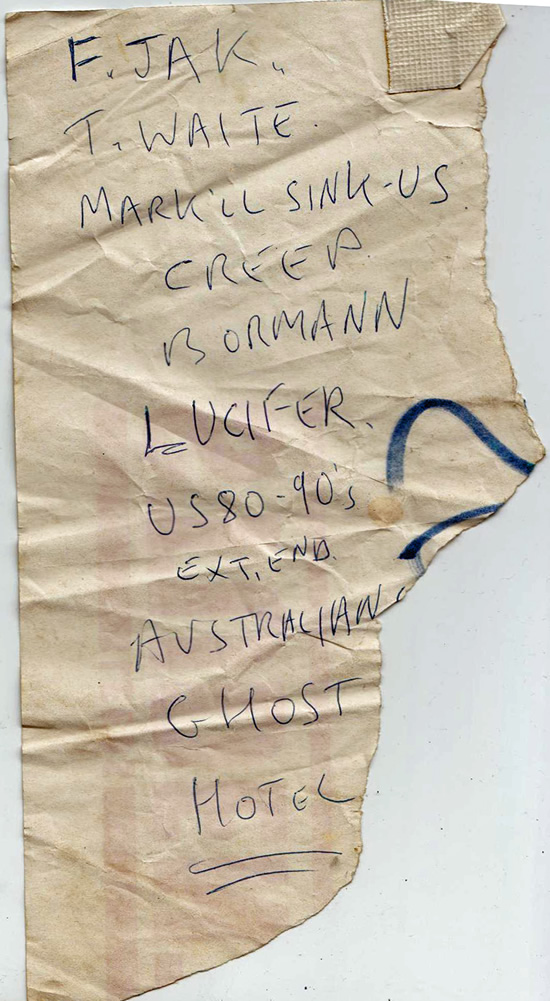 F. JAK.
T. WAITE.
MARK'LL SINK-US
CREEP.
BORMANN
LUCIFER.
US 80-90's
EXT. END.
AUSTRALIAN
GHOST
HOTEL